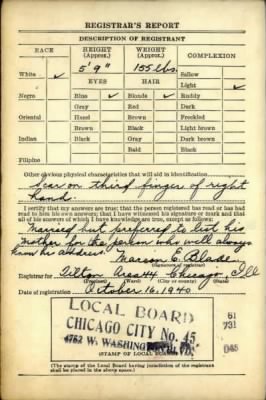 REGISTRAR'S REPORT
DESCRIPTION OF REGISTRANT
RACE HEIGHT (Approx.) WEIGHT (Approx.) COMPLEXION
5' 9" 155 lbs.
White ✓ Sallow
EYES HAIR Light ✓
Negro Blue ✓ Blonde ✓ Ruddy
Gray Red Dark
Oriental Hazel Brown Freckled
Brown Black Light brown
Indian Black Gray Dark brown
Bald Black
Filipino
Other obvious physical characteristics that will aid in identification
Scar on third finger of right
hand.
I certify that my answers are true; that the person registered has read or has had
read to him his own answers; that I have witnessed his signature or mark and that
all of his answers of which I have knowledge are true, except as follows:
Married but preferred to list his
mother for the person who will always
know his address.
Marion E. Blade
(Signature of registrar)
Registrar for Tilton Area 44 Chicago, Ill
(Precinct) (Ward) (City or county) (State)
Date of registration October 16, 1940
LOCAL BOARD
CHICAGO CITY No. 45
4752 W. WASHINGTON BLVD.
61
731
045
(STAMP OF LOCAL BOARD)
(The stamp of the Local Board having jurisdiction of the registrant
shall be placed in the above space.)